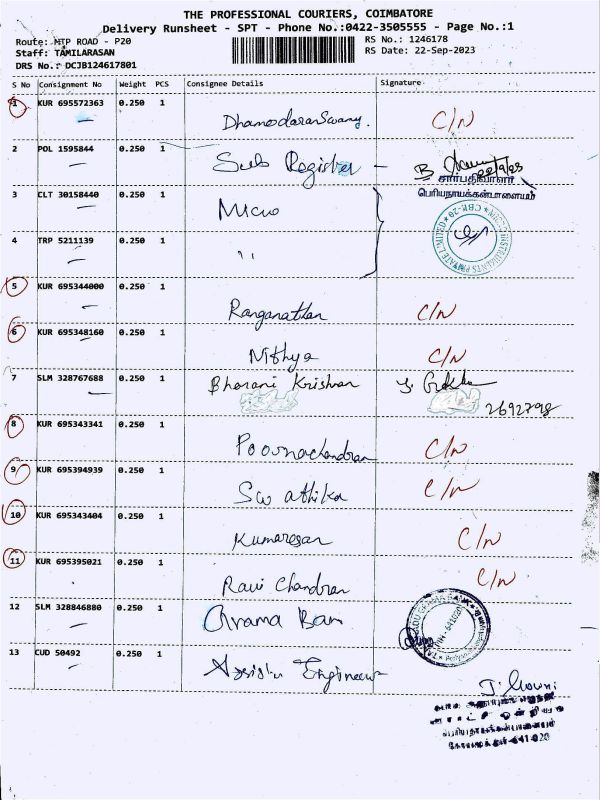 THE PROFESSIONAL COURIERS, COIMBATORE
Delivery Runsheet - SPT - Phone No.:0422-3505555 - Page No.:1
Route: MTP ROAD - P20
RS No.: 1246178
Staff: TAMILARASAN
RS Date: 22-Sep-2023
DRS No.: DCJB124617801
S No Consignment No Weight PCS Consignee Details Signature
1 KUR 695572363 0.250 1 Dhamodaranswamy. C/N
2 POL 1595844 0.250 1 Sub Register - 22/9/23
சார்பதிவாளர்
பெரியநாயக்கன்பாளையம்
3 CLT 30158440 0.250 1 Micro
4 TRP 5211139 0.250 1 ,,
5 KUR 695344000 0.250 1 Ranganathan C/N
6 KUR 695348160 0.250 1 Nithya C/N
7 SLM 328767688 0.250 1 Bharani Krishnan
2692798
8 KUR 695343341 0.250 1 Poornachandran C/N
9 KUR 695394939 0.250 1 Swathika C/N
10 KUR 695343404 0.250 1 Kumaresan C/N
11 KUR 695395021 0.250 1 Ravi Chandran C/N
12 SLM 328846880 0.250 1 Grama Ban
13 CUD 50492 0.250 1 Assistn Engineer